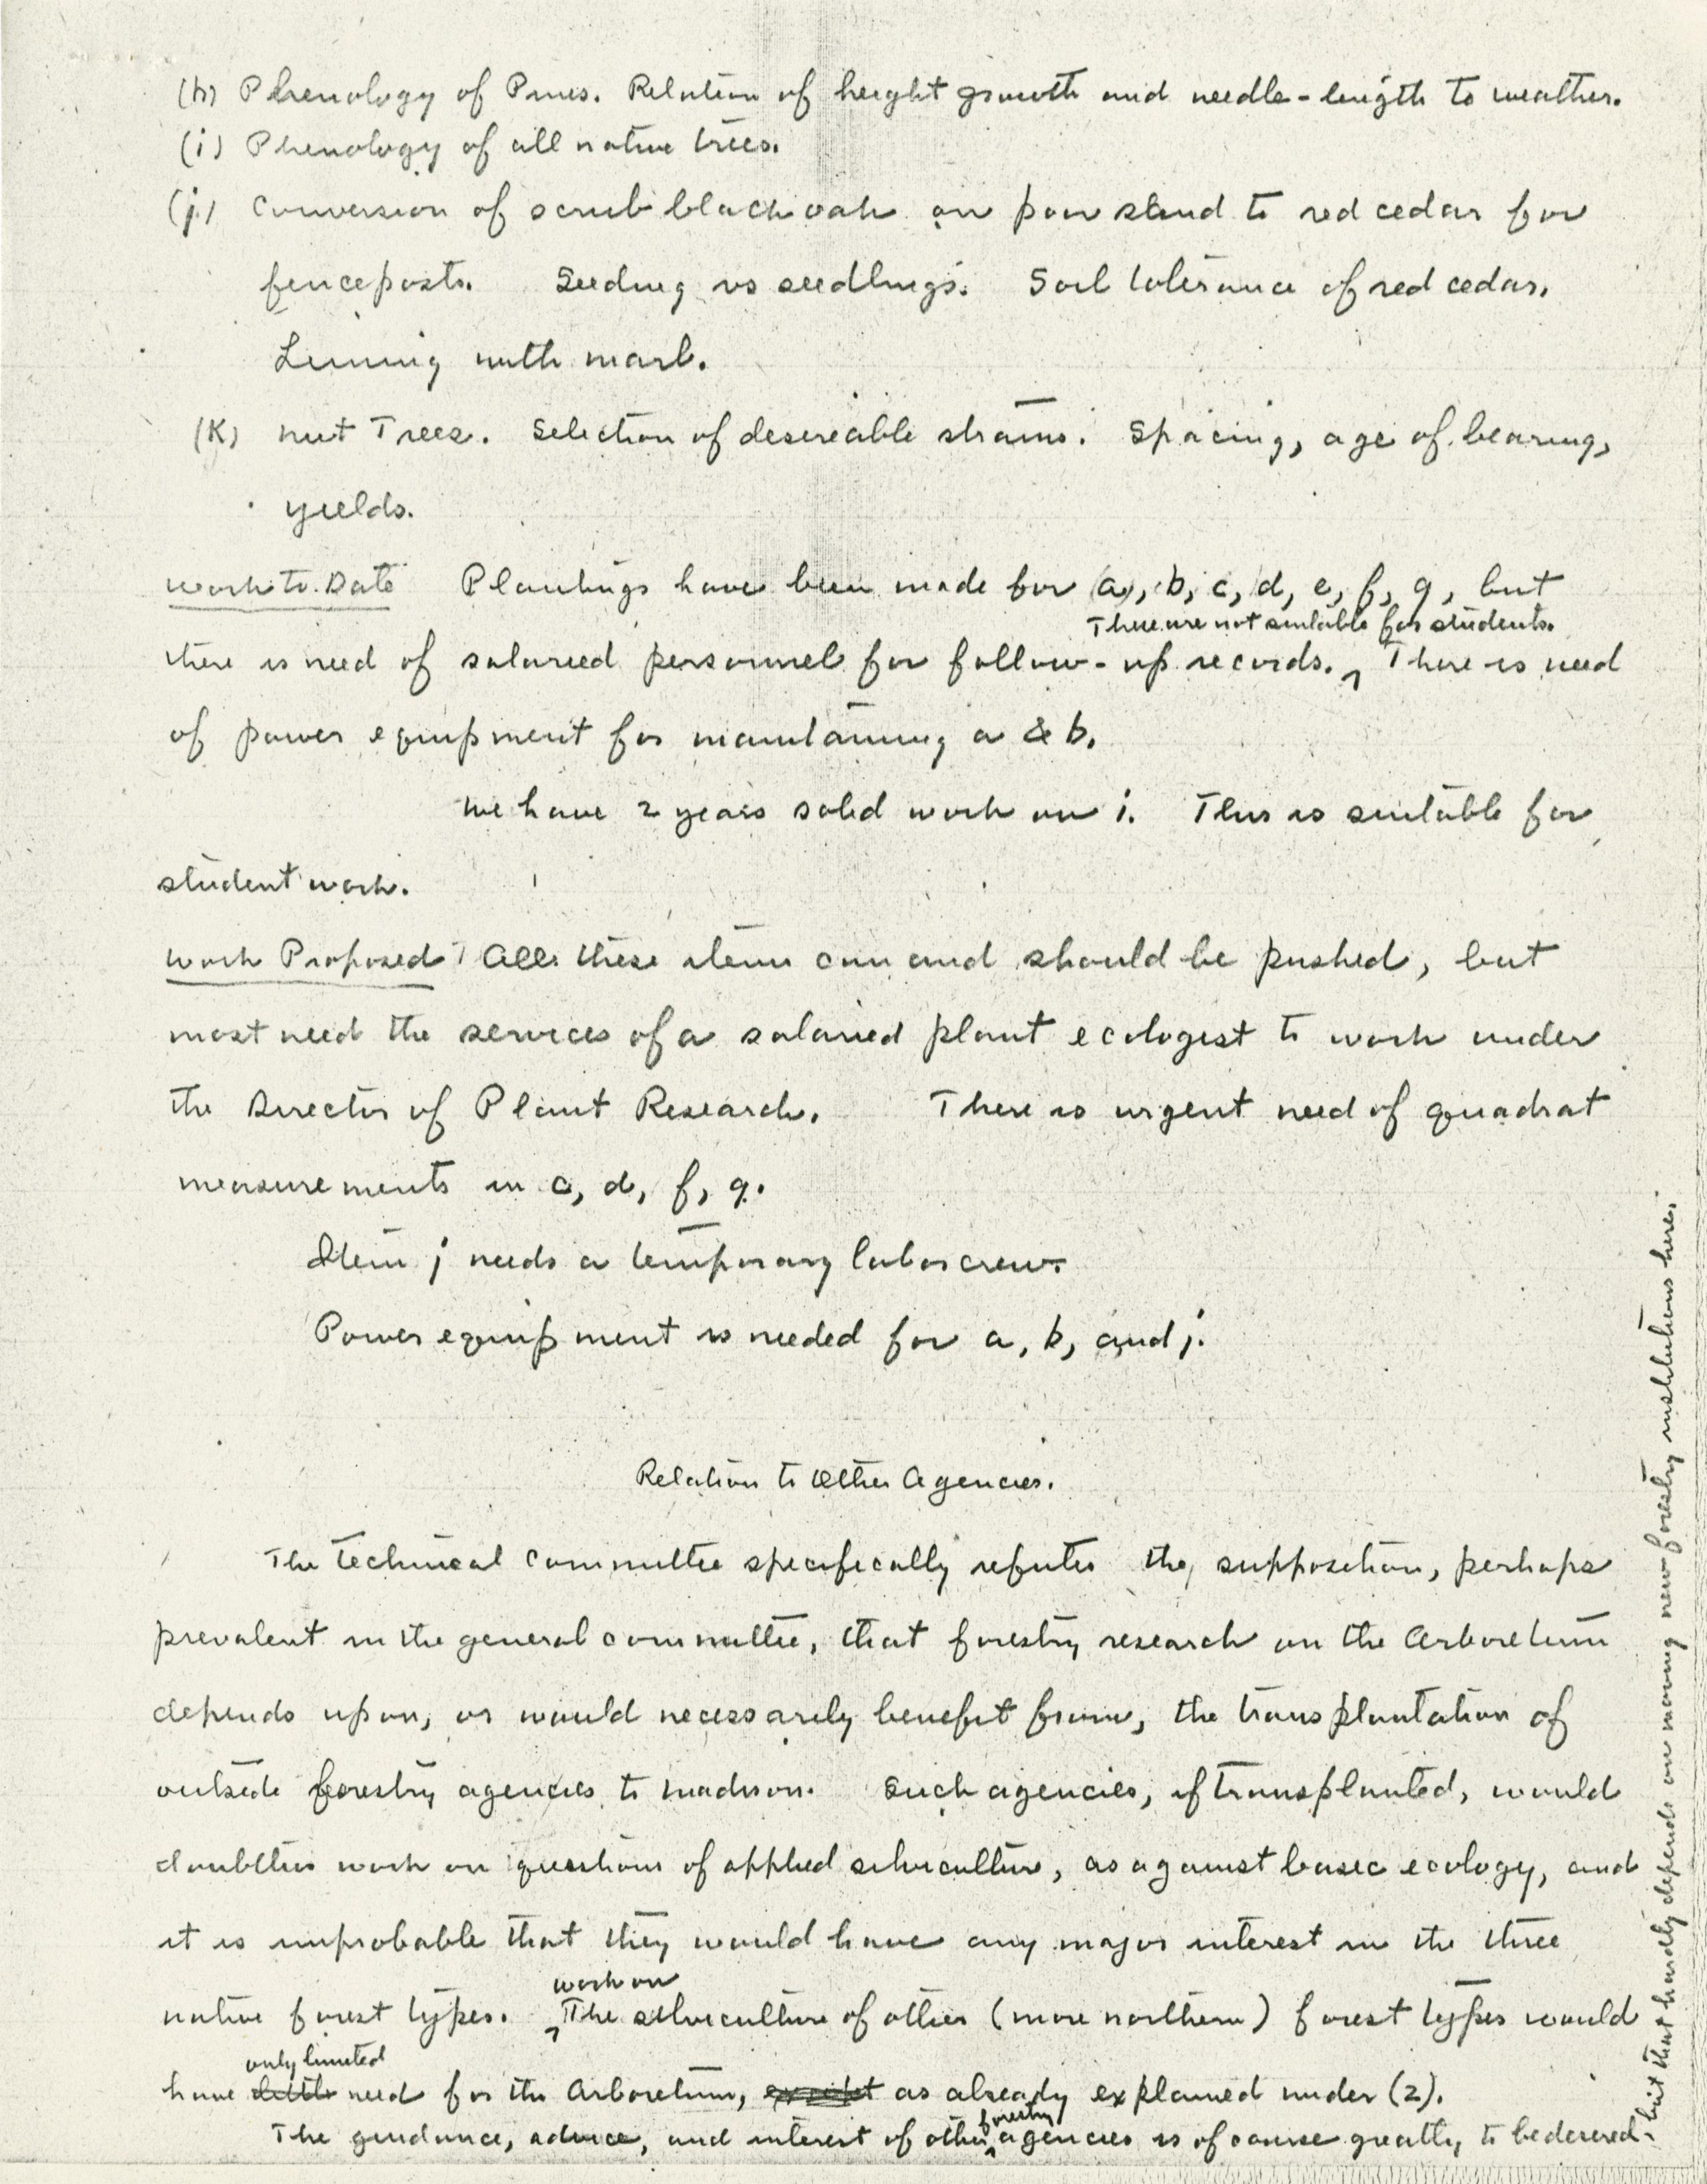 (h) Phenology of Pines. Relation of height growth and needle-length to weather.
(i) Phenology of all native trees.
(j) Conversion of scrub black oak on poor sand to red cedar for
fenceposts. Seeding vs seedlings. Soil tolerance of red cedar.
Liming with marl.
(K) Nut Trees. Selection of desireable strains. Spacing, age of bearing,
yields.
Work to Date Plantings have been made for (a), b, c, d, e, f, g, but
These are not suitable for students.
there is need of salaried personnel for follow-up records. There is need
of power equipment for maintaining a & b.
We have 2 years solid work on i. This is suitable for
student work.
Work Proposed All these items can and should be pushed, but
most need the services of a salaried plant ecologist to work under
the Director of Plant Research. There is urgent need of quadrat
measurements in c, d, f, g.
Item j needs a temporary labor crew.
Power equipment is needed for a, b, and j.
Relation to Other Agencies.
The technical committee specifically refutes the supposition, perhaps
prevalent in the general committee, that forestry research on the Arboretum
depends upon, or would necessarily benefit from, the transplantation of
outside forestry agencies to Madison. Such agencies, if transplanted, would
doubtless work on questions of applied silviculture, as against basic ecology, and
it is improbable that they would have any major interest in the three
work on
native forest types. The silviculture of other (more northern) forest types would
only limited
have little need for the Arboretum, except as already explained under (2).
forestry
The guidance, advice, and interest of other agencies is of course greatly to be desired,
but that hardly depends on moving new forestry institutions here.